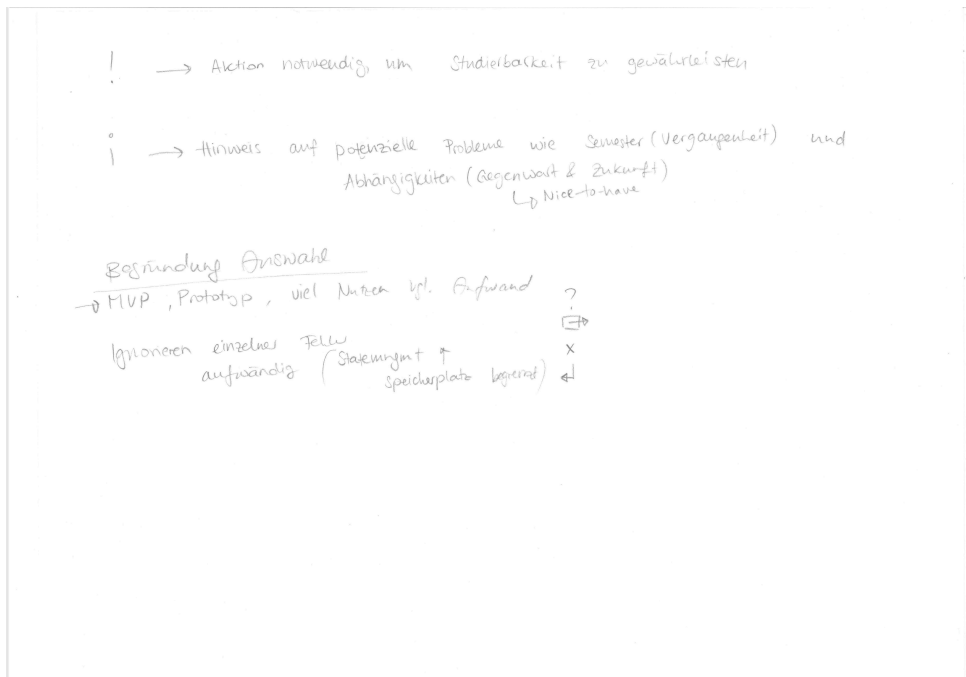 ! → Aktion notwendig, um Studierbarkeit zu gewährleisten
i → Hinweis auf potenzielle Probleme wie Semester (Vergangenheit) und
Abhängigkeiten (Gegenwart & Zukunft)
↳ Nice-to-have
Begründung Auswahl
→ MVP, Prototyp, viel Nutzen vgl. Aufwand
?
Ignorieren einzelner
aufwändig (Statemngmt ↑
x
Speicherplatz begrenzt)